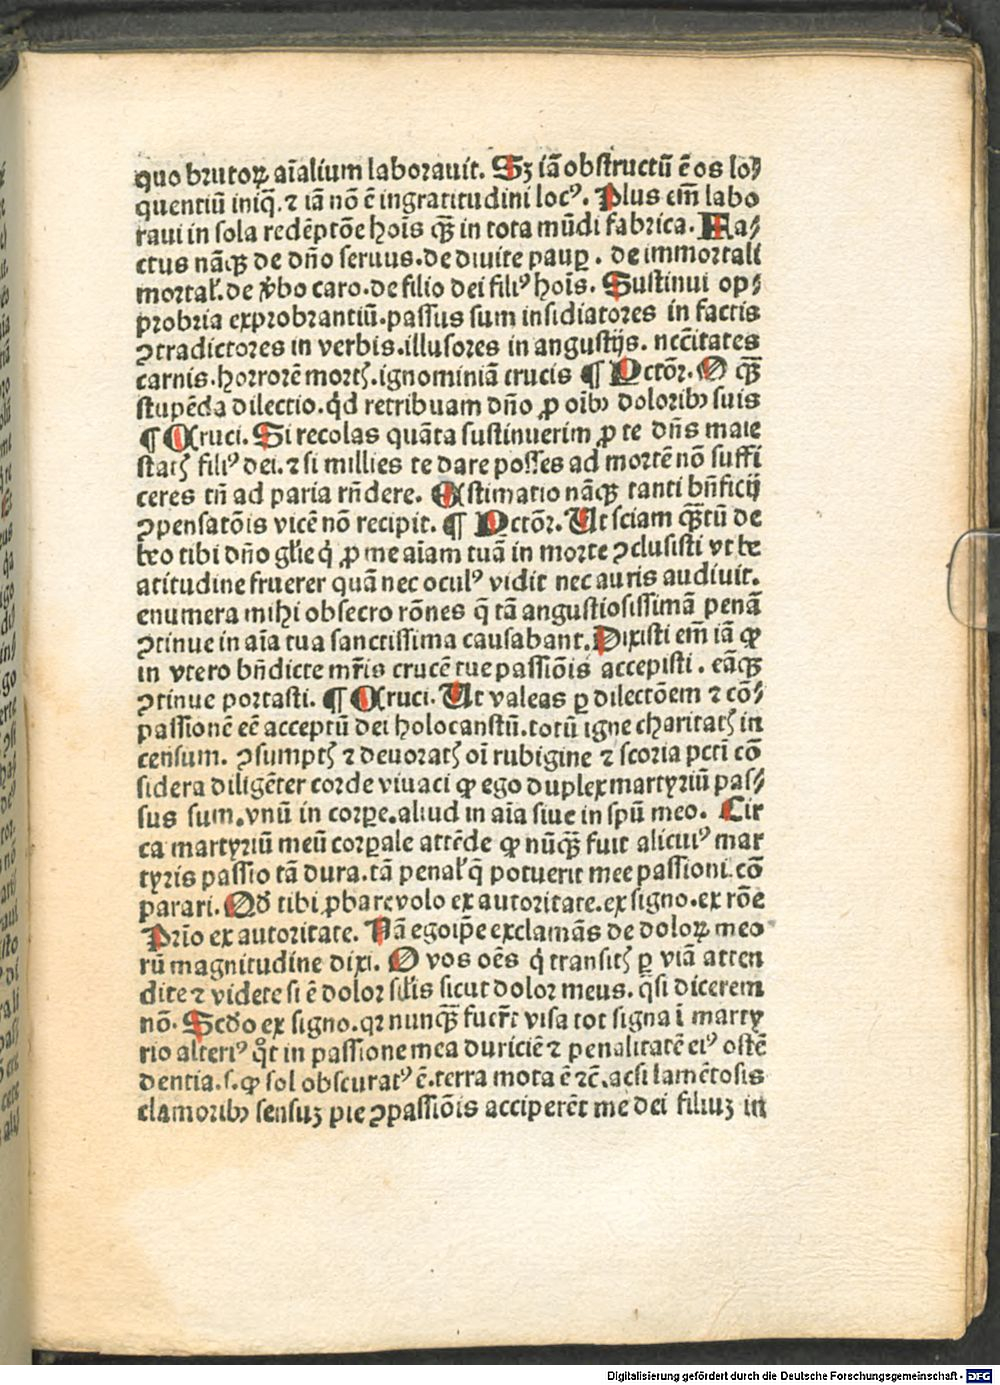 quo brutoꝝ aīalium laborauit. Sꝫ iā obstructū ē os lo⸗
quentiū iniq̄. ⁊ iā nō ē ingratitudini locꝰ. Plus em̄ labo
raui in sola redēptōe hoīs qꝫ̄ in tota mūdi fabrica. Fa⸗
ctus nāqꝫ de dn̄o seruus. de diuite paup̲. de immortali
mortal̕. de v̕bo caro. de filio dei filiꝰ hoīs. Sustinui op⸗
probria exprobrantiū. passus sum insidiatores in factis
ꝯtradictores in verbis. illusores in angustijs. necc̄itates
carnis. horrorē mortꝭ. ignominiā crucis ¶ Pctōꝛ. O qꝫ̄
stupēda dilectio. qͥd retribuam dn̄o ꝓ oībꝰ doloribꝰ suis
¶ Cruci. Si recolas quāta sustinuerim ꝓ te dn̄s maie
statꝭ filiꝰ dei. ⁊ si millies te dare posses ad mortē nō suffi
ceres tn̄ ad paria rn̄dere. Estimatio nāqꝫ tanti bn̄ficij
ꝯpensatōis vicē nō recipit. ¶ Pctōꝛ. Ut sciam qꝫ̄tū de
beo tibi dn̄o gl̕ie qͥ ꝓ me aīam tuā in morte ꝯclusisti vt be
atitudine fruerer quā nec oculꝰ vidit nec auris audiuit.
enumera mihi obsecro rōnes q̄ tā angustiosissimā penā
ꝯtinue in aīa tua sanctissima causabant. Dixisti em̄ iā ꝙ
in vtero bn̄dicte mr̄is crucē tue passiōis accepisti. eāqꝫ
ꝯtinue portasti. ¶ Cruci. Ut valeas ꝑ dilectōem ⁊ cō⸗
passionē eē acceptū dei holocanstū. totū igne charitatꝭ in
censum. ꝯsumptꝭ ⁊ deuoratꝭ oī rubigine ⁊ scoria pctī cō
sidera diligēter corde viuaci ꝙ ego duplex martyriū pas⸗
sus sum. vnū in corꝑe. aliud in aīa siue in spū meo. Cir
ca martyriū meū corꝑale attēde ꝙ nūqꝫ̄ fuit alicuiꝰ mar
tyris passio tā dura. tā penal̕ q̄ potuerit mee passioni cō
parari. Qd̕ tibi ꝓbare volo ex autoritate. ex signo. ex rōe
Prīo ex autoritate. Nā egoip̄e exclamās de doloꝝ meo
rū magnitudine dixi. O vos oēs qͥ transitꝭ ꝑ viā atten
dite ⁊ videte si ē dolor sil̕is sicut dolor meus. qͣsi dicerem
nō. Scd̕o ex signo. qꝛ nunqꝫ̄ fuer̄t visa tot signa ī marty
rio alteriꝰ qͦt in passione mea duriciē ⁊ penalitatē eiꝰ ostē
dentia. s. ꝙ sol obscuratꝰ ē. terra mota ē ⁊c̄. acsi lamētosis
clamoribꝰ sensuꝫ pie ꝯpassiōis acciperēt me dei filiuꝫ in
Digitalisierung gefördert durch die Deutsche Forschungsgemeinschaft - DFG